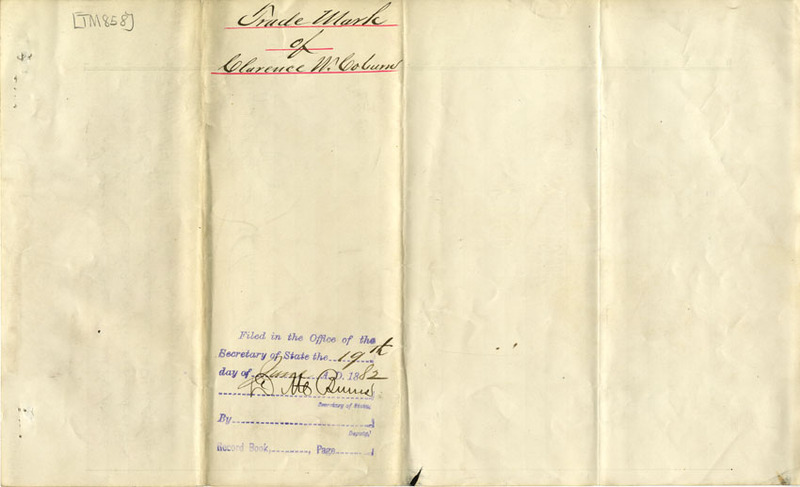 [TM858]
Trade Mark
of
Clarence W. Coburn
Filed in the Office of the
Secretary of State the 19th
day of June A.D. 1882
Burns
Secretary of State.
By
Deputy
Record Book, Page